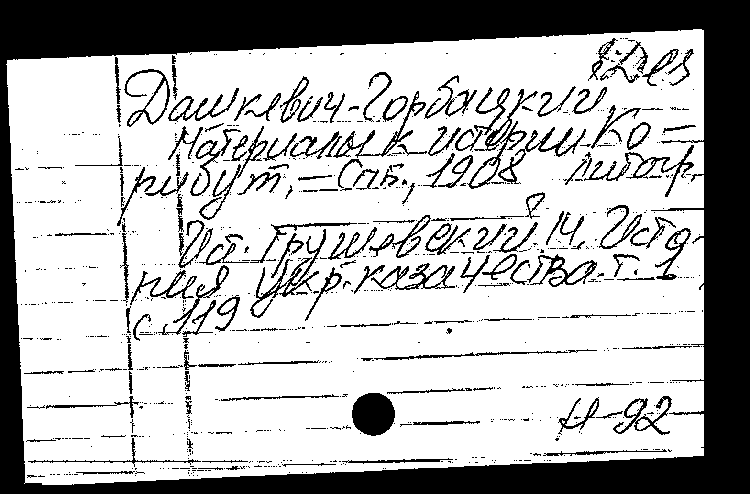 Дашкевич-Горбацкий
Материалы к истории Ко-
рибут, - Спб., 1908 литогр.
Ист. Грушевский М. Исто-
рия укр. казачества т. 1
с. 119
Н-92